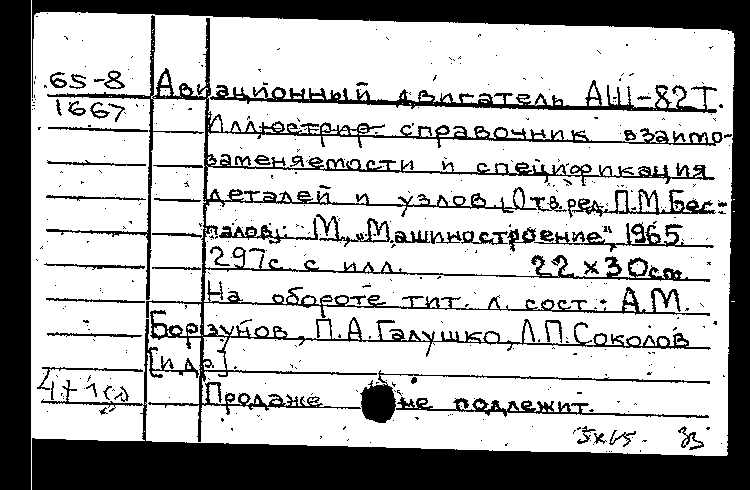 65-8 Авиационный двигатель АШ-82Т.
1667 Иллюстрир. справочник взаимо-
заменяемости и спецификация
деталей и узлов. [Отв. ред. П.М. Бес-
палов]. М., "Машиностроение", 1965.
297с. с илл. 22 x 30см.
На обороте тит. л. сост.: А.М.
Борзунов, П.А. Галушко, Л.П. Соколов
[и др.].
Продаже не подлежит.